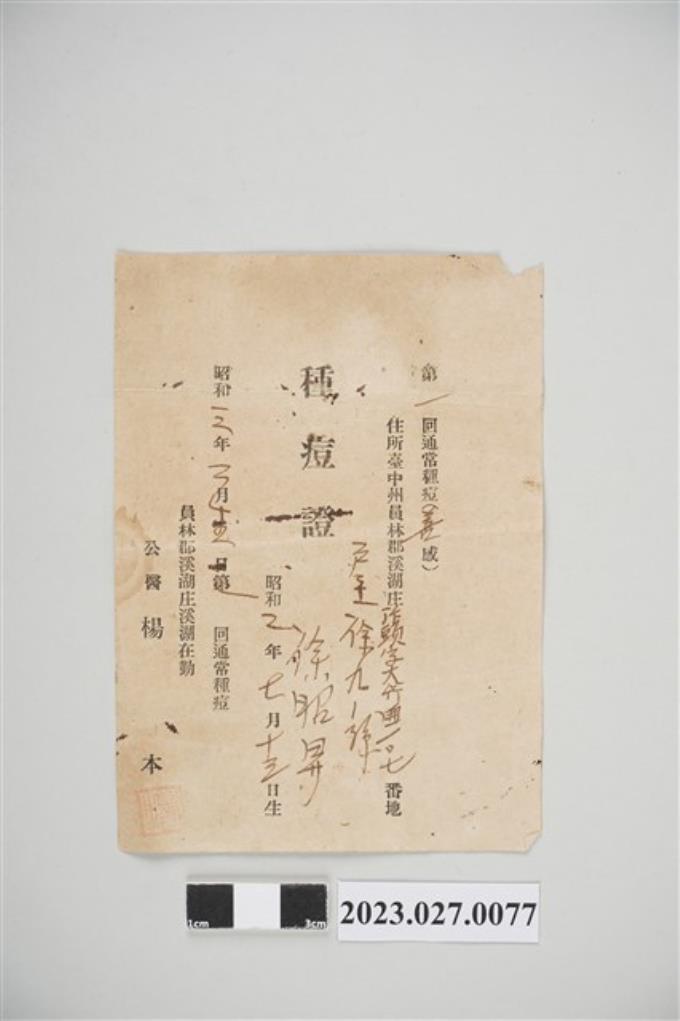 第一回通常種痘(善感)
住所臺中州員林郡溪湖庄 番地
徐九
種痘證
徐昭昇
昭和 年七月十三日生
昭和三年三月 日第一回通常種痘
員林郡溪湖庄溪湖在勤
公醫 楊 本
1cm 3cm
2023.027.0077